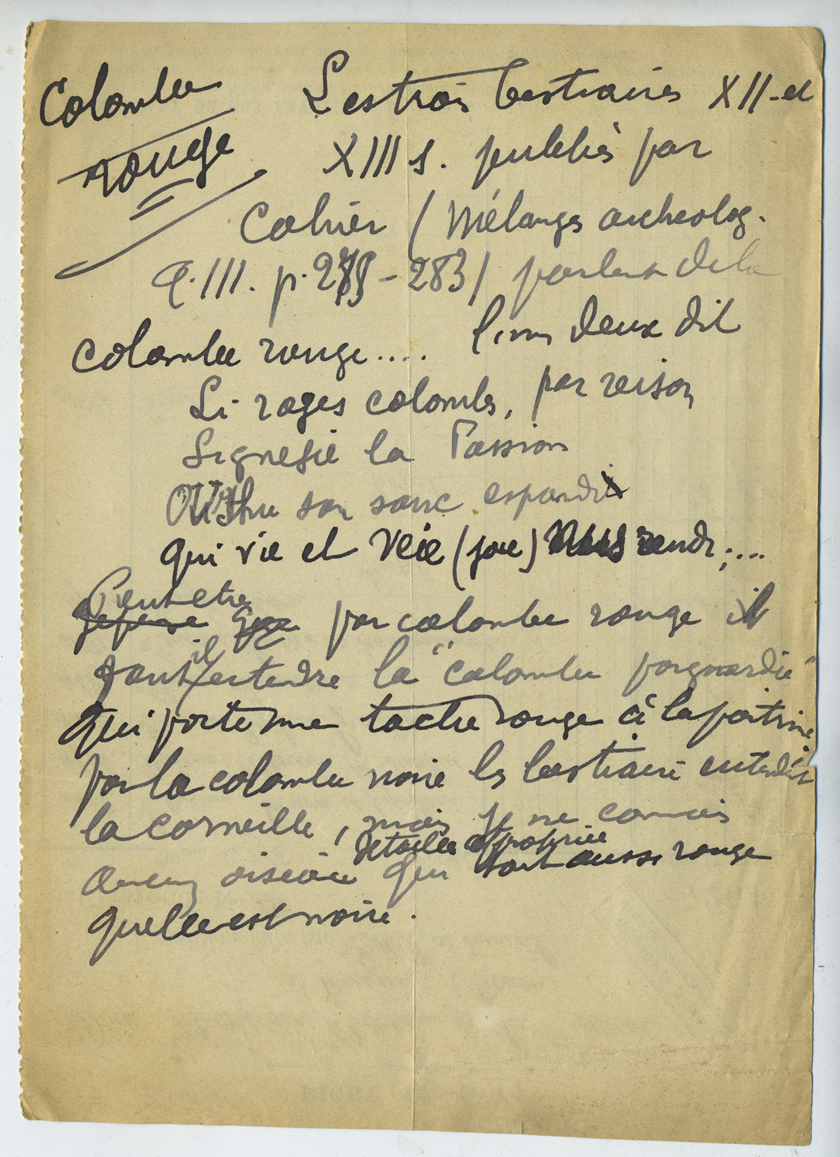 Colombe
rouge
Les trois bestiaires XII et
XIII s. publiés par
Cahier (Mélanges archeolog.
T. III. p. 279 - 283) parlent de la
colombe rouge.... l'un deux dit
Li roges colombs, par reison
Signefie la Passion
son sanc espandi
qui vie et veie (joie) nus rendi....
Peut être par colombe rouge il
faut il entendre la "colombe poignardée"
qui porte une tache rouge à la poitrine
par la colombe noire les bestiaire entendent
la corneille, mais je ne connais
aucun oiseau qui soit aussi rouge
qu'elle est noire.